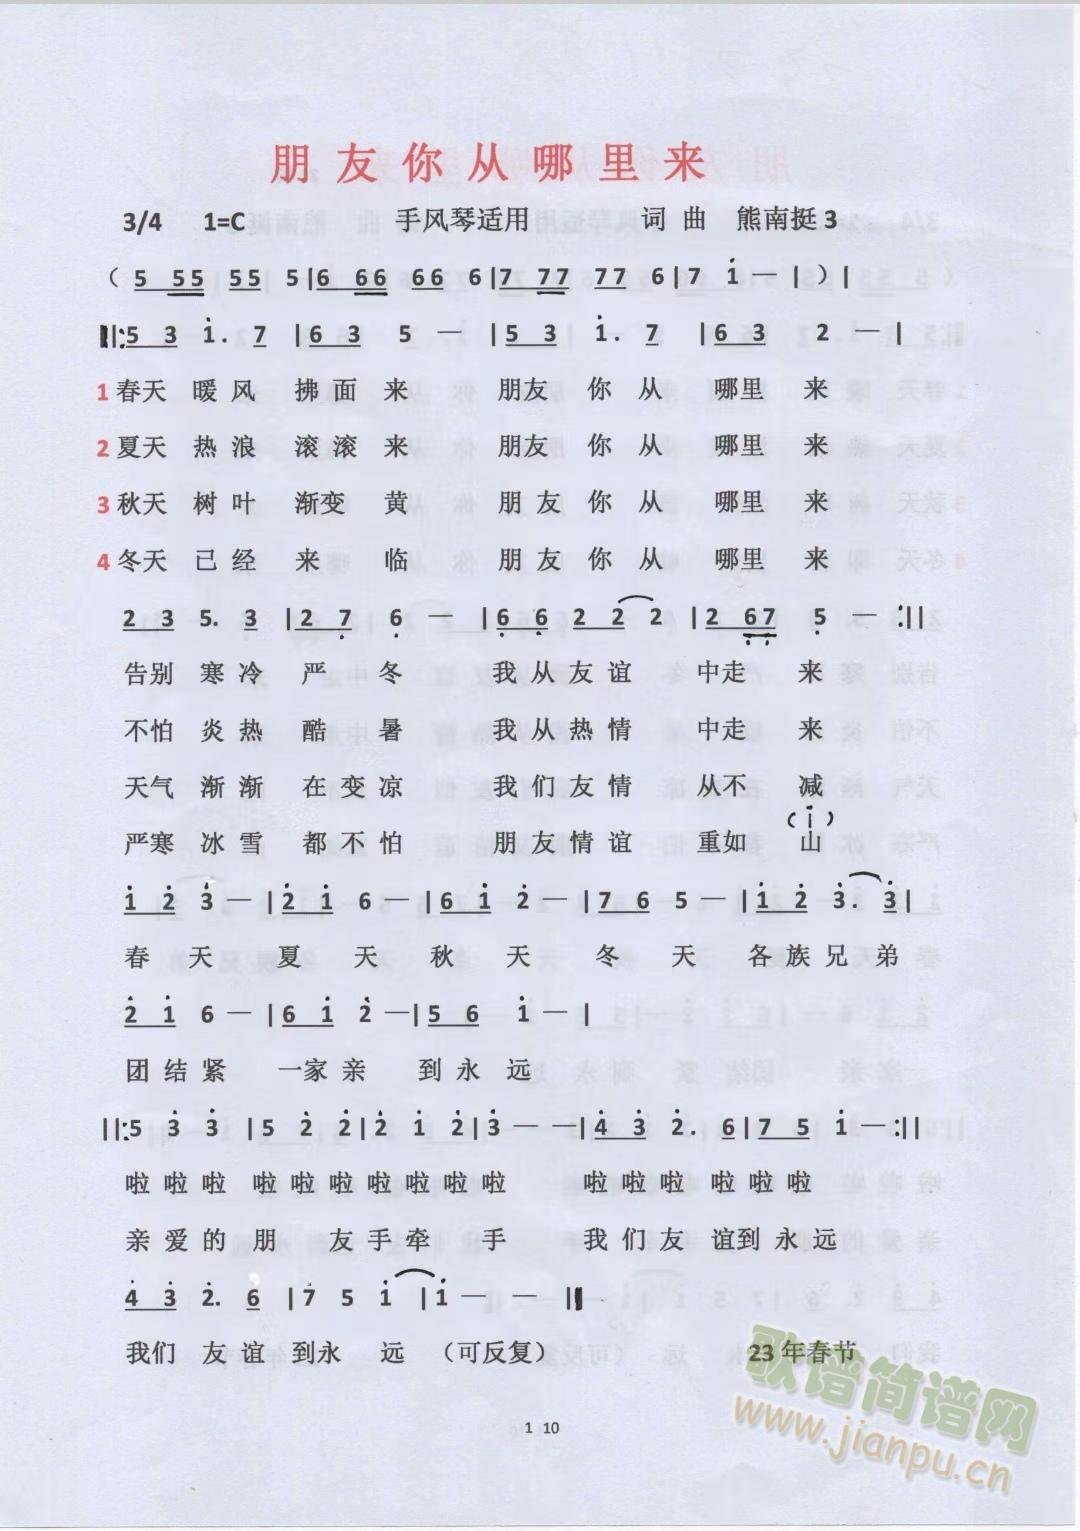 朋友你从哪里来
3/4 1=C 手风琴适用 词 曲 熊南挺3
( 5 55 55 5|6 66 66 6|7 77 77 6|7 i — | ) |
||: 5 3 i . 7 |6 3 5 — |5 3 i . 7 |6 3 2 — |
1 春天 暖 风 拂 面 来 朋友 你 从 哪里 来
2 夏天 热 浪 滚 滚 来 朋友 你 从 哪里 来
3 秋天 树 叶 渐变 黄 朋 友 你 从 哪里 来
4 冬天 已 经 来 临 朋 友 你 从 哪里 来
2 3 5. 3 |2 7 6 — |6 6 2 2 2 |2 67 5 — :||
告别 寒 冷 严 冬 我 从 友 谊 中走 来
不怕 炎 热 酷 暑 我 从 热 情 中走 来
天气 渐 渐 在 变 凉 我 们 友 情 从不 减
( i )
严寒 冰 雪 都 不 怕 朋 友 情 谊 重如 山
i 2 3 — |2 i 6 — |6 i 2 — |7 6 5 — |i 2 3 3|
春 天 夏 天 秋 天 冬 天 各 族 兄 弟
2 i 6 — |6 i 2 — |5 6 i — |
团 结 紧 一家 亲 到 永 远
||: 5 3 3 |5 2 2 |2 i 2 |3 — — |4 3 2. 6 |7 5 i — :||
啦 啦 啦 啦 啦 啦 啦 啦 啦 啦 啦 啦 啦 啦 啦 啦
亲 爱 的 朋 友 手 牵 手 我 们 友 谊到 永 远
4 3 2. 6 |7 5 i |i — — ||
我们 友 谊 到永 远 (可反复) 23 年春节
歌谱简谱网
www.jianpu.cn
1 10